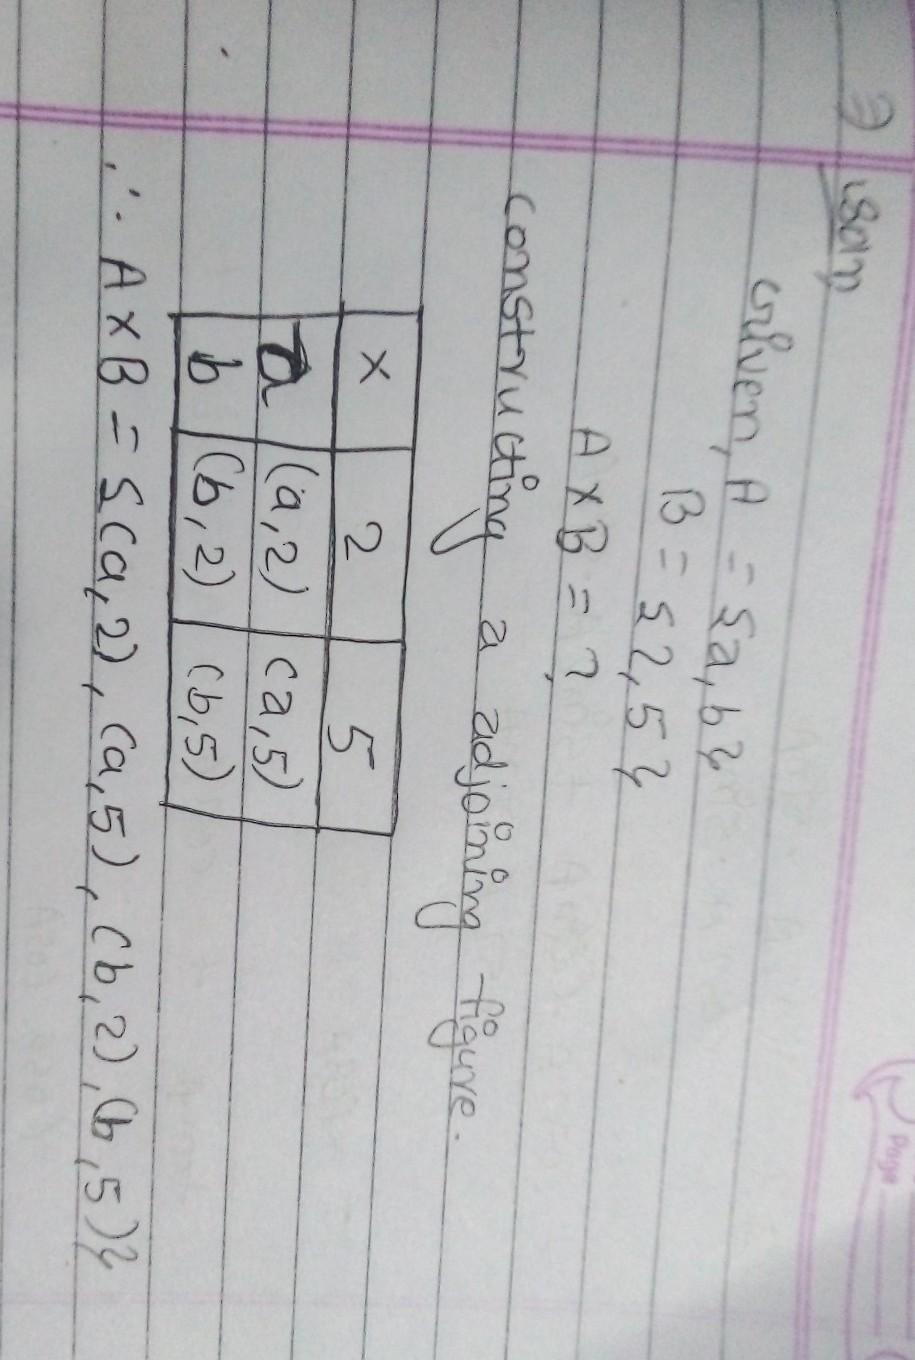 3) Soln
Given, A = {a, b}
B = {2, 5}
A × B = ?
constructing a adjoining figure.
× 2 5
a (a, 2) (a, 5)
b (b, 2) (b, 5)
∴ A × B = {(a, 2), (a, 5), (b, 2), (b, 5)}
Page